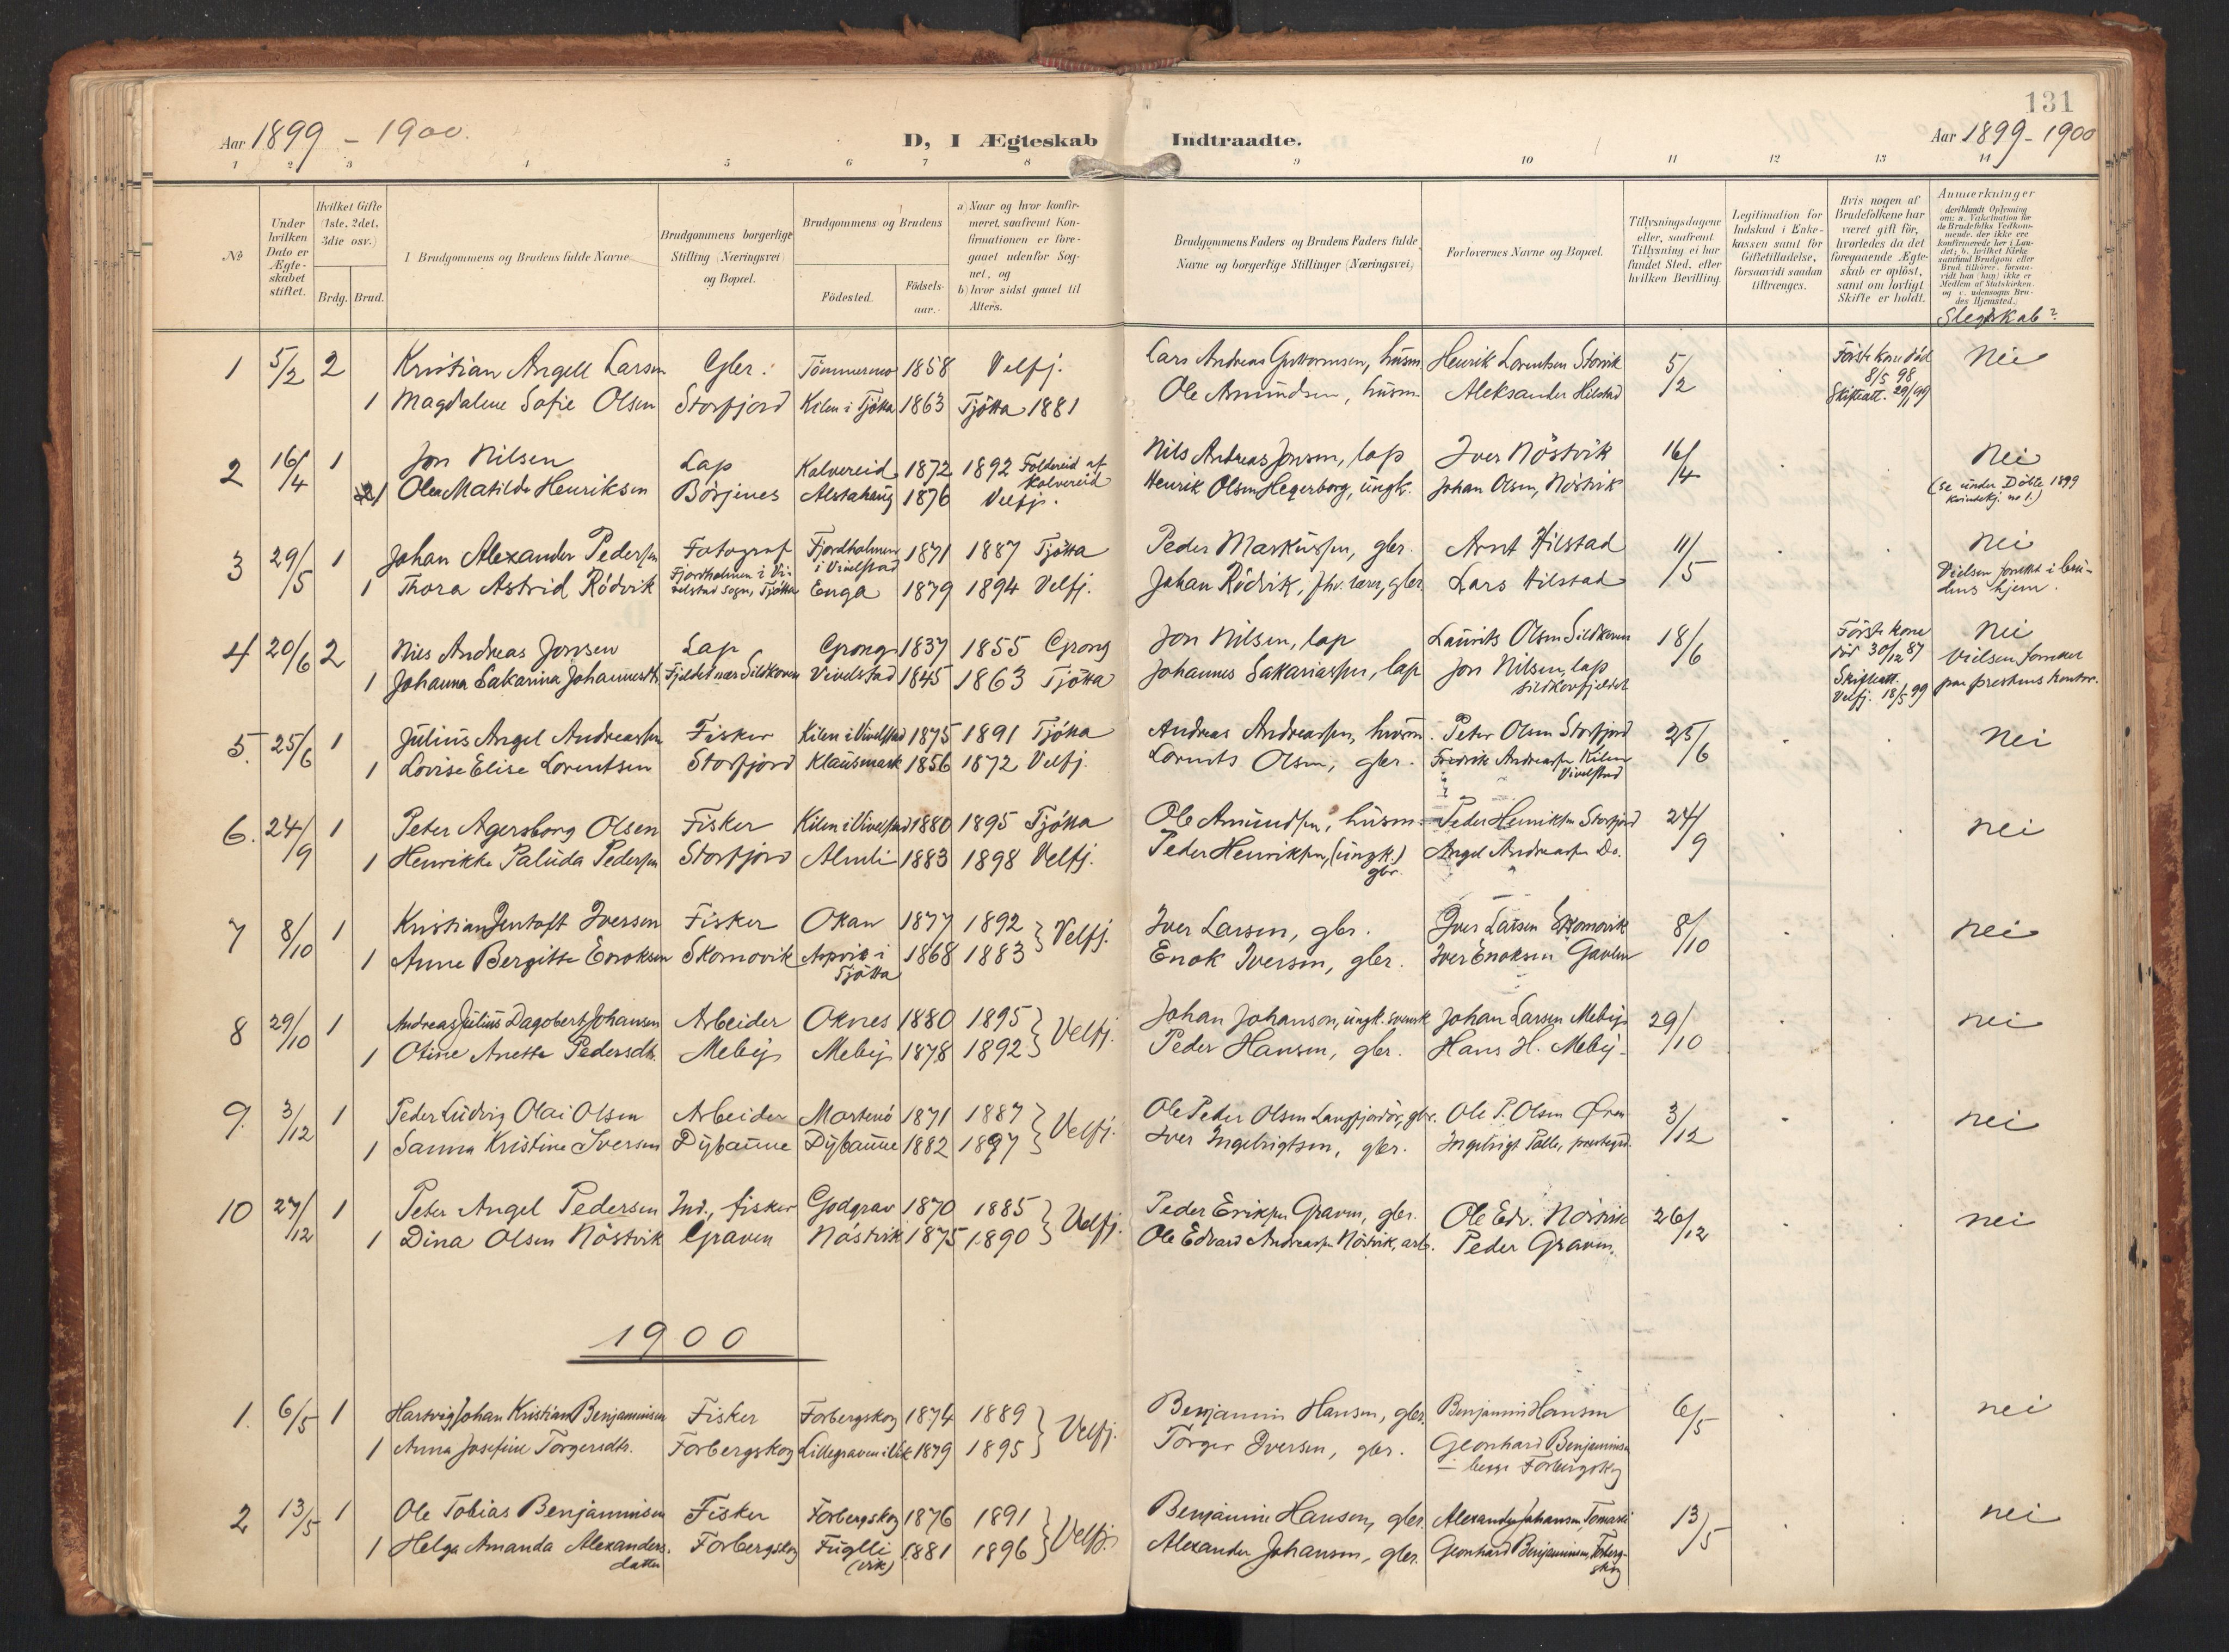 131
Aar 1899 - 1900.
D, I Ægteskab Indtraadte.
Aar 1899 - 1900
1 2 3 4 5 6 7 8 9 10 11 12 13 14
No
Under hvilken Dato er Ægteskabet stiftet.
Hvilket Gifte (1ste, 2det, 3die osv.)
Brdg. Brud.
I Brudgommens og Brudens fulde Navne.
Brudgommens borgerlige Stilling (Næringsvei) og Bopæl.
Brudgommens og Brudens
Födested.
Födsels-aar.
a) Naar og hvor konfirmeret, saafremt Konfirmationen er foregaaet udenfor Sognet, og
b) hvor sidst gaaet til Alters.
Brudgommens Faders og Brudens Faders fulde Navne og borgerlige Stillinger (Næringsvei)
Forlovernes Navne og Bopæl.
Tillysningsdagene eller, saafremt Tillysning ei har fundet Sted, efter hvilken Bevilling.
Legitimation for Indskud i Enkekassen samt for Giftetilladelse, forsaavidt saadan tiltrænges.
Hvis nogen af Brudefolkene har været gift för, hvorledes da det foregaaende Ægteskab er oplöst, samt om lovligt Skifte er holdt.
Anmærkninger
Slegtskab?
1 5/2 2 Kristian Angell Larsen Gbr. Tömmermo 1858 Velfj. Lars Andreas Guttormsen, husm. Henrik Lorentsen Storvik 5/2 Förste kone död 8/5 98 Nei
1 Magdalene Sofie Olsen Storfjord Kilen i Tjötta 1863 Tjötta 1881 Ole Amundsen, husm. Aleksander Hilstad Skifteatt. 29/1 99
2 16/4 1 Jon Nilsen Lap Kolvereid 1872 1892 Foldereid af Kolvereid Nils Andreas Jonsen, lap Iver Nöstvik 16/4 Nei
1 Olea Matilde Henriksen Börjenes Alstahaug 1876 Velfj. Henrik Olsen Hegerborg, ungk. Johan Olsen, Nöstvik (se under Döbte 1899 kvindekj. no 1.)
3 29/5 1 Johan Alexander Pedersen Fotograf Fjordholmen i Vivelstad 1871 1887 Tjötta Peder Markussen, gbr. Arnt Hilstad 11/5 Nei
1 Thora Astrid Rödvik Fjordholmen i Vivelstad sogn, Tjötta Enga 1879 1894 Velfj. Johan Rödvik, fhv. lærer, gbr. Lars Hilstad Vielsen forrettet i brudens hjem.
4 20/6 2 Nils Andreas Jonsen Lap Grong 1837 1855 Grong Jon Nilsen, lap Laurits Olsen Sildkoven 18/6 Förste kone död 30/12 87 Nei
1 Johanna Sakarina Johannesdtr. Fjeldet nær Sildkoven Vivelstad 1845 1863 Tjötta Johannes Sakariassen, lap Jon Nilsen, lap Sildkovfjeldet Skifteatt. Velfj. 18/5 99 Vielsen paa prestens kontor.
5. 25/6 1 Julius Angel Andreassen Fisker Kilen i Vivelstad 1875 1891 Tjötta Andreas Andreassen, husm. Peter Olsen Storfjord 25/6 Nei
1 Lovise Elise Lorentsen Storfjord Klausmark 1856 1872 Velfj. Lorents Olsen, gbr. Fredrik Andreassen Kilen Vivelstad
6. 24/9 1 Peter Agersborg Olsen Fisker Kilen i Vivelstad 1880 1895 Tjötta Ole Amundsen, husm. Peder Henriksen Storfjord 24/9 nei
1 Henrikke Paluda Pedersen Storfjord Almli 1883 1898 Velfj. Peder Henriksen, (ungk.) gbr. Angel Andreassen Do.
7 8/10 1 Kristian Jentoft Iversen Fisker Okan 1877 1892 Velfj. Iver Larsen, gbr. Iver Larsen Skomovik 8/10 nei
1 Anne Bergitte Enoksen Skomovik Aspvik i Tjötta 1868 1883 Enok Iversen, gbr. Iver Enoksen Gaulen
8 29/10 1 Andreas Julius Dagobert Johansen Arbeider Oknes 1880 1895 Velfj. Johan Johanson, ungk. svensk Johan Larsen Meby 29/10 nei
1 Otine Anette Pedersdtr. Meby Meby 1878 1892 Peder Hansen, gbr. Hans H. Meby
9. 3/12 1 Peder Ludvig Olai Olsen Arbeider Martenö 1871 1887 Velfj. Ole Peder Olsen Langfjordör, gbr. Ole P. Olsen Øren 3/12 nei
1 Sanna Kristine Iversen Dybaune Dybaune 1882 1897 Iver Ingebrigtsen, gbr. Ingebrigt Palle,
10 27/12 1 Peter Angel Pedersen Ind., fisker Godgrav 1870 1885 Velfj. Peder Eriksen Graven, gbr. Ole Edv. Nöstvik 26/12 nei
1 Dina Olsen Nöstvik Graven Nöstvik 1875 1890 Ole Edvard Andreassen Nöstvik, arb. Peder Graven.
1900
1. 6/5 1 Hartvig Johan Kristian Benjaminsen Fisker Forbergskog 1874 1889 Velfj. Benjamin Hansen, gbr. Benjamin Hansen 6/5 nei
1 Anna Josefine Torgersdtr. Forbergskog Lillegraven i Vik 1879 1895 Torger Iversen, gbr. Geonhard Benjaminsen begge Forbergskog
2 13/5 1 Ole Tobias Benjaminsen Fisker Forbergskog 1876 1891 Velfj. Benjamin Hansen, gbr. Alexander Johansen, 13/5 nei
1 Helga Amanda Alexandersdatter Forbergskog Fuglli (Vik) 1881 1896 Alexander Johansen, gbr. Geonhard Benjaminsen, Forbergskog